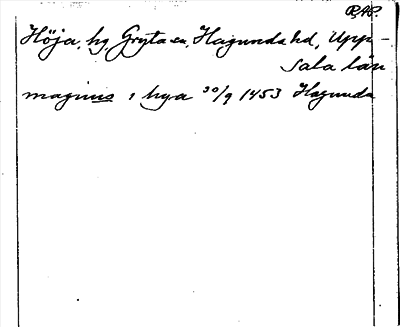 RAP.
Höja, hg, Gryta sn, Hagunda hd, Upp-
sala län
magnus i hyia 30/9 1453 Hagunda